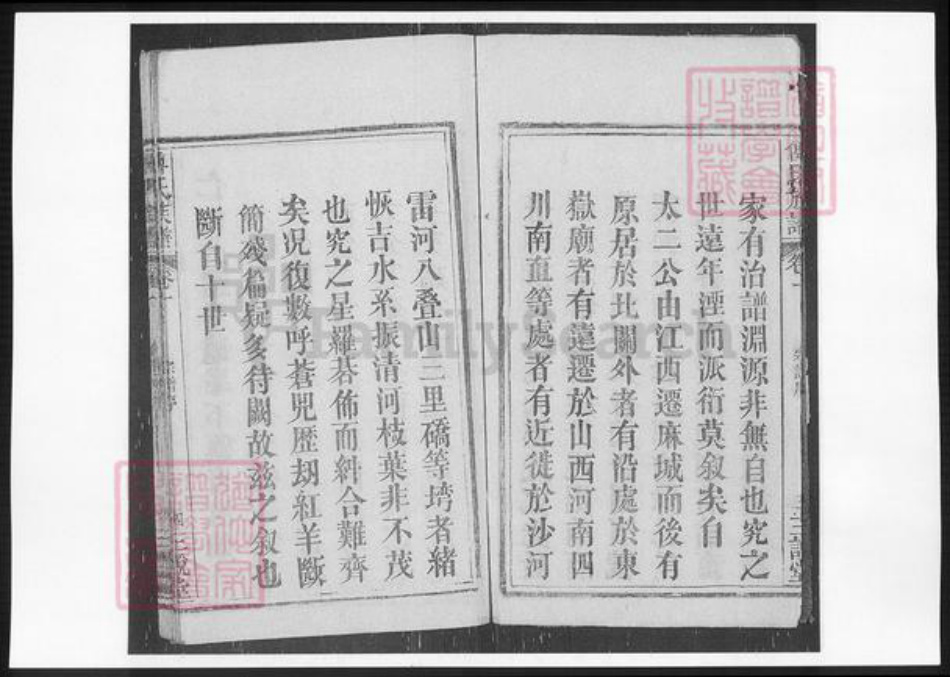 家有治譜淵源非無自也究之
世遠年湮而派衍莫叙矣自
太二公由江西遷麻城而後有
原居於北關外者有沿處於東
嶽廟者有遠遷於山西河南四
川南直等處者有近徙於沙河
雷河八叠山三里礄等塆者緒
恢吉水系振清河枝葉非不茂
也究之星羅棊佈而糾合難齊
矣况復數呼蒼兕歷刼紅羊斷
簡殘篇疑多待闕故兹之叙也
斷自十世
氏族譜
卷一
FamilySearch